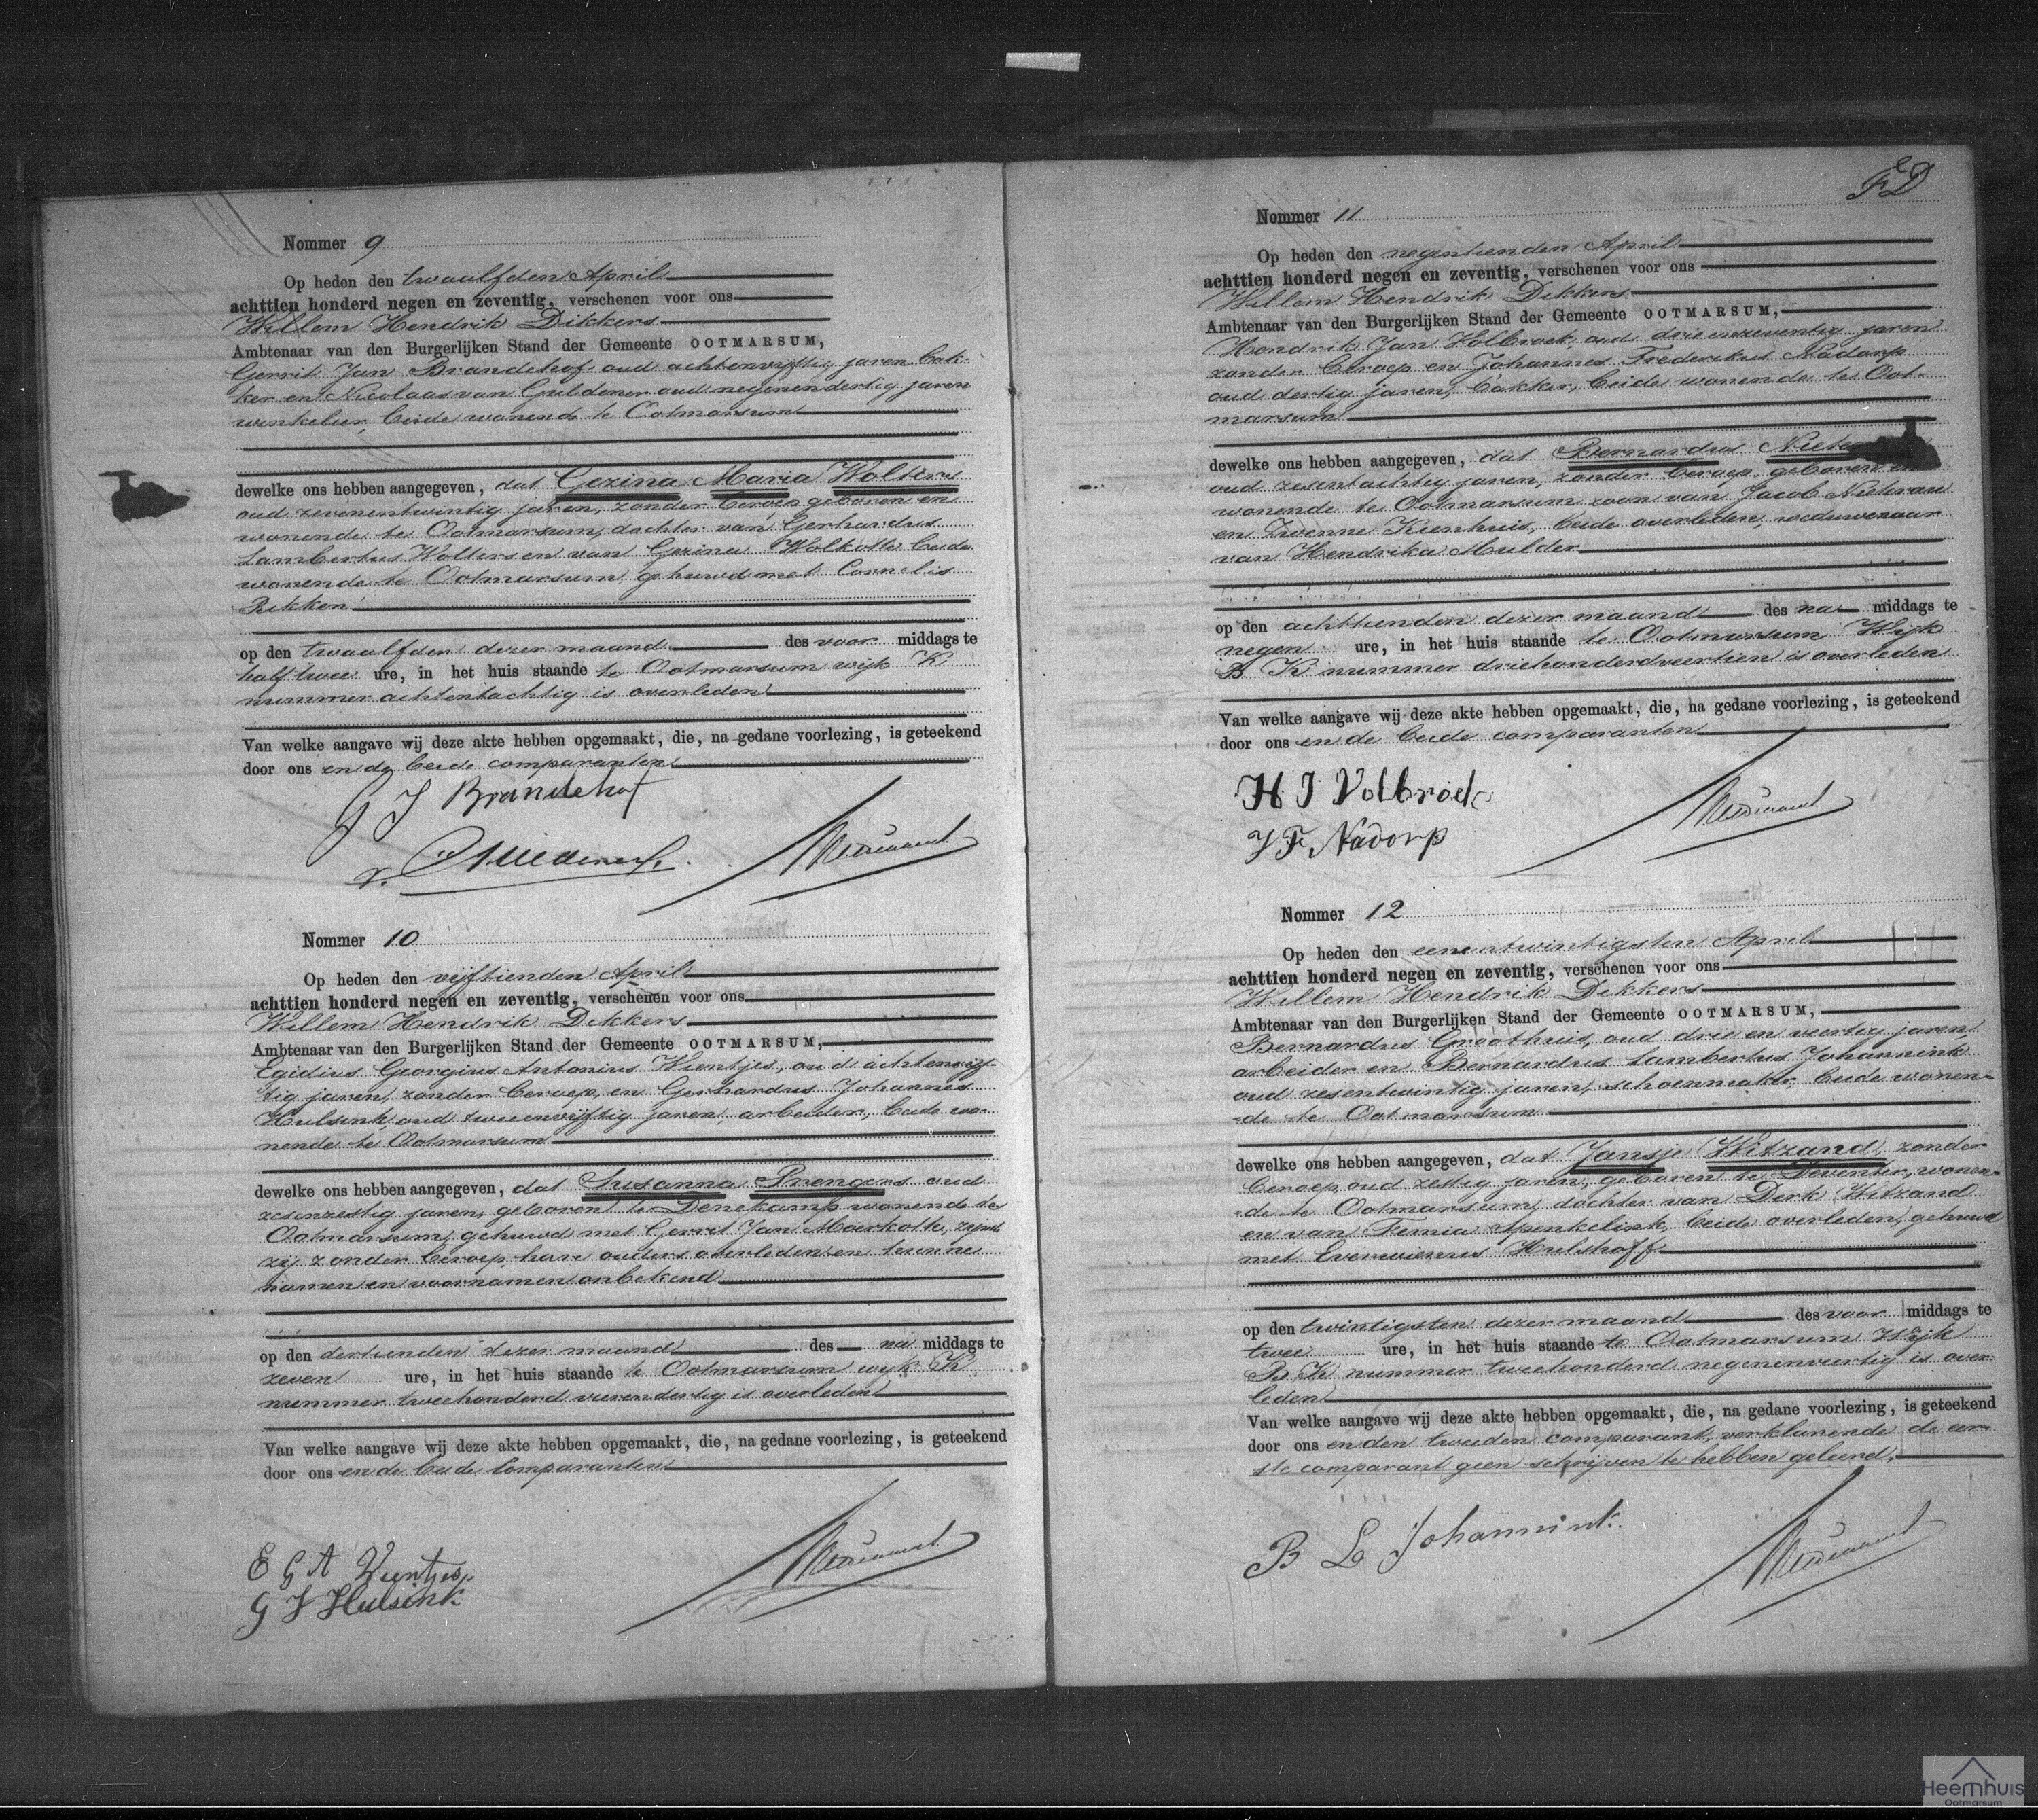 Nommer 9
Op heden den twaalfden April
achttien honderd negen en zeventig, verschenen voor ons
Willem Hendrik Dikkers
Ambtenaar van den Burgerlijken Stand der Gemeente OOTMARSUM,
Gerrit Jan Brandehof oud achtenvijftig jaren bak-
ker en Nicolaas van Guldener oud negenendertig jaren
winkelier, beide wonende te Ootmarsum
dewelke ons hebben aangegeven, dat Gezina Maria Wolters
oud zevenentwintig jaren, zonder beroep geboren en
wonende te Ootmarsum, dochter van Gerhardus
Lambertus Wolters en van Gezina Wolkotte beide
wonende te Ootmarsum, gehuwd met Cornelis
Rikken
op den twaalfden dezer maand des voor middags te
half twee ure, in het huis staande te Ootmarsum wijk K
nummer achtentachtig is overleden
Van welke aangave wij deze akte hebben opgemaakt, die, na gedane voorlezing, is geteekend
door ons en de beide comparanten
G J Brandehof
Nommer 10
Op heden den vijftienden April
achttien honderd negen en zeventig, verschenen voor ons
Willem Hendrik Dikkers
Ambtenaar van den Burgerlijken Stand der Gemeente OOTMARSUM,
Egidius Georgius Antonius Wientjes, oud achtenvijf-
tig jaren, zonder beroep, en Gerhardus Johannes
Hulsink, oud tweeenvijftig jaren, arbeider, beide wo-
nende te Ootmarsum
dewelke ons hebben aangegeven, dat Susanna Prengers oud
zesenzestig jaren, geboren te Denekamp wonende te
Ootmarsum, gehuwd met Gerrit Jan Moerkotte,
zij zonder beroep hare ouders overleden en hunne
namen en voornamen onbekend
op den dertienden dezer maand des na middags te
zeven ure, in het huis staande te Ootmarsum wijk K
nummer tweehonderd vierendertig is overleden
Van welke aangave wij deze akte hebben opgemaakt, die, na gedane voorlezing, is geteekend
door ons en de beide Comparanten
E G A Wientjes
G J Hulsink
FD
Nommer 11
Op heden den negentienden April
achttien honderd negen en zeventig, verschenen voor ons
Willem Hendrik Dikkers
Ambtenaar van den Burgerlijken Stand der Gemeente OOTMARSUM,
Hendrik Jan Volbroek oud drieenzeventig jaren
zonder beroep en Johannes Frederikus Nadorp
oud dertig jaren, bakker, beide wonende te Oot-
marsum
dewelke ons hebben aangegeven, dat Bernardus
oud zesentachtig jaren, zonder beroep, geboren en
wonende te Ootmarsum zoon van Jacob Nieterau
en Zwenne Kienhuis, beide overleden, weduwenaar
van Hendrika Mulder
op den achttienden dezer maand des na middags te
negen ure, in het huis staande te Ootmarsum Wijk
B K nummer driehonderdveertien is overleden
Van welke aangave wij deze akte hebben opgemaakt, die, na gedane voorlezing, is geteekend
door ons en de beide comparanten
H J Volbroek
J F Nadorp
Nommer 12
Op heden den eenentwintigsten April
achttien honderd negen en zeventig, verschenen voor ons
Willem Hendrik Dikkers
Ambtenaar van den Burgerlijken Stand der Gemeente OOTMARSUM,
Bernardus Groothuis, oud drie en veertig jaren,
arbeider en Bernardus Lambertus Johannink
oud zesentwintig jaren, schoenmaker, beide wonen-
de te Ootmarsum
dewelke ons hebben aangegeven, dat Jansje Witzand, zonder
beroep, oud zestig jaren, geboren te Deventer, wonen-
de te Ootmarsum, dochter van Derk Witzand
en van Femia beide overleden, gehuwd
met Everwienus Hulshoff
op den twintigsten dezer maand des voor middags te
twee ure, in het huis staande te Ootmarsum Wijk
B K nummer tweehonderd negenenveertig is over-
leden
Van welke aangave wij deze akte hebben opgemaakt, die, na gedane voorlezing, is geteekend
door ons en den tweeden comparant, verklarende de eer-
ste comparant geen schrijven te hebben geleerd.
B L Johannink
Heemhuis
Ootmarsum